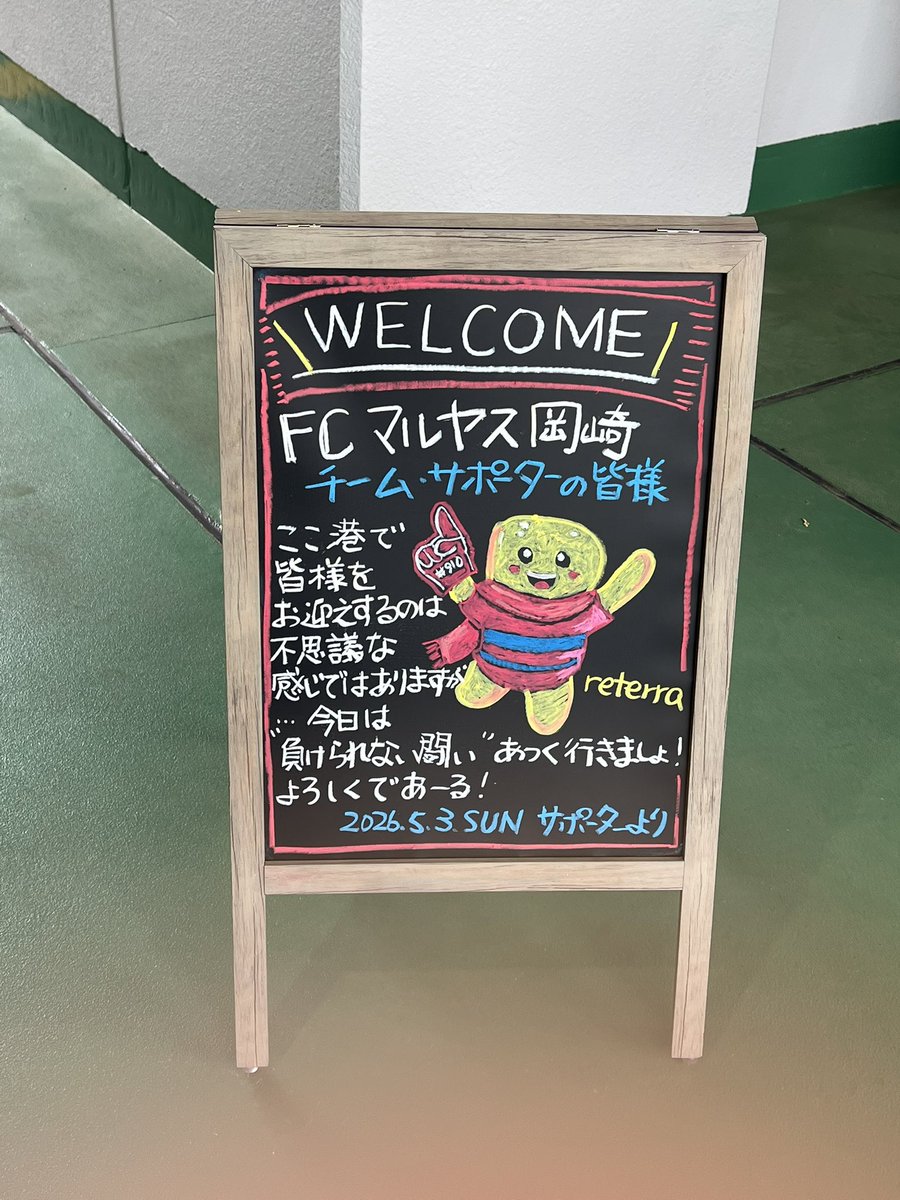 WELCOME
FC マルヤス岡崎
チーム・サポーターの皆様
ここ港で
皆様を
お迎えするのは
不思議な
感じではありますが
…今日は
"負けられない闘い"あつく行きましょ!
よろしくであーる!
#910
reterra
2026.5.3.SUN サポーターより